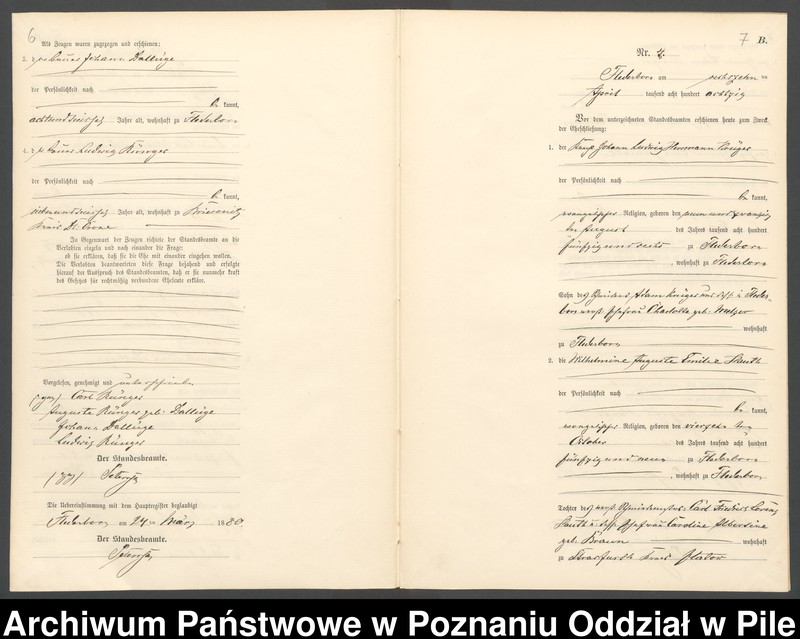 6
Als Zeugen waren zugegen und erschienen:
3. der Bauer Johann Dallüge
der Persönlichkeit nach
be kannt,
achtunddreißig Jahre alt, wohnhaft zu Flederborn
4. der Bauer Ludwig Rünger
der Persönlichkeit nach
be kannt,
siebenunddreißig Jahre alt, wohnhaft zu
Kreis Dt. Crone
In Gegenwart der Zeugen richtete der Standesbeamte an die
Verlobten einzeln und nach einander die Frage:
ob sie erklären, daß sie die Ehe mit einander eingehen wollen.
Die Verlobten beantworteten diese Frage bejahend und erfolgte
hierauf der Ausspruch des Standesbeamten, daß er sie nunmehr kraft
des Gesetzes für rechtmäßig verbundene Eheleute erkläre.
Vorgelesen, genehmigt und unterschrieben
(gez) Carl Rünger
Auguste Rünger geb: Dallüge
Johann Dallüge
Ludwig Rünger
Der Standesbeamte.
(gez)
Die Uebereinstimmung mit dem Hauptregister beglaubigt
Flederborn am 24 ten März 1880.
Der Standesbeamte.
7
B.
Nr. 4.
Flederborn am sechszehn ten
April tausend acht hundert achtzig
Vor dem unterzeichneten Standesbeamten erschienen heute zum Zweck
der Eheschließung:
1. der Knecht Johann Ludwig Hermann Krüger
der Persönlichkeit nach
be kannt,
evangelischer Religion, geboren den neun und zwanzig
ten August des Jahres tausend acht hundert
fünfzig und sechs zu Flederborn
, wohnhaft zu Flederborn
Sohn des Adam Krüger und in Fleder-
born Ehefrau Charlotte geb:
wohnhaft
zu Flederborn
2. die Wilhelmine Auguste Emilie
der Persönlichkeit nach
be kannt,
evangelischer Religion, geboren den vierzehn ten
October des Jahres tausend acht hundert
fünfzig und neun zu Flederborn
, wohnhaft zu Flederborn
Tochter des Carl
Ehefrau Caroline Albertine
geb: Braun wohnhaft
zu Kreis Flatow
Archiwum Państwowe w Poznaniu Oddział w Pile